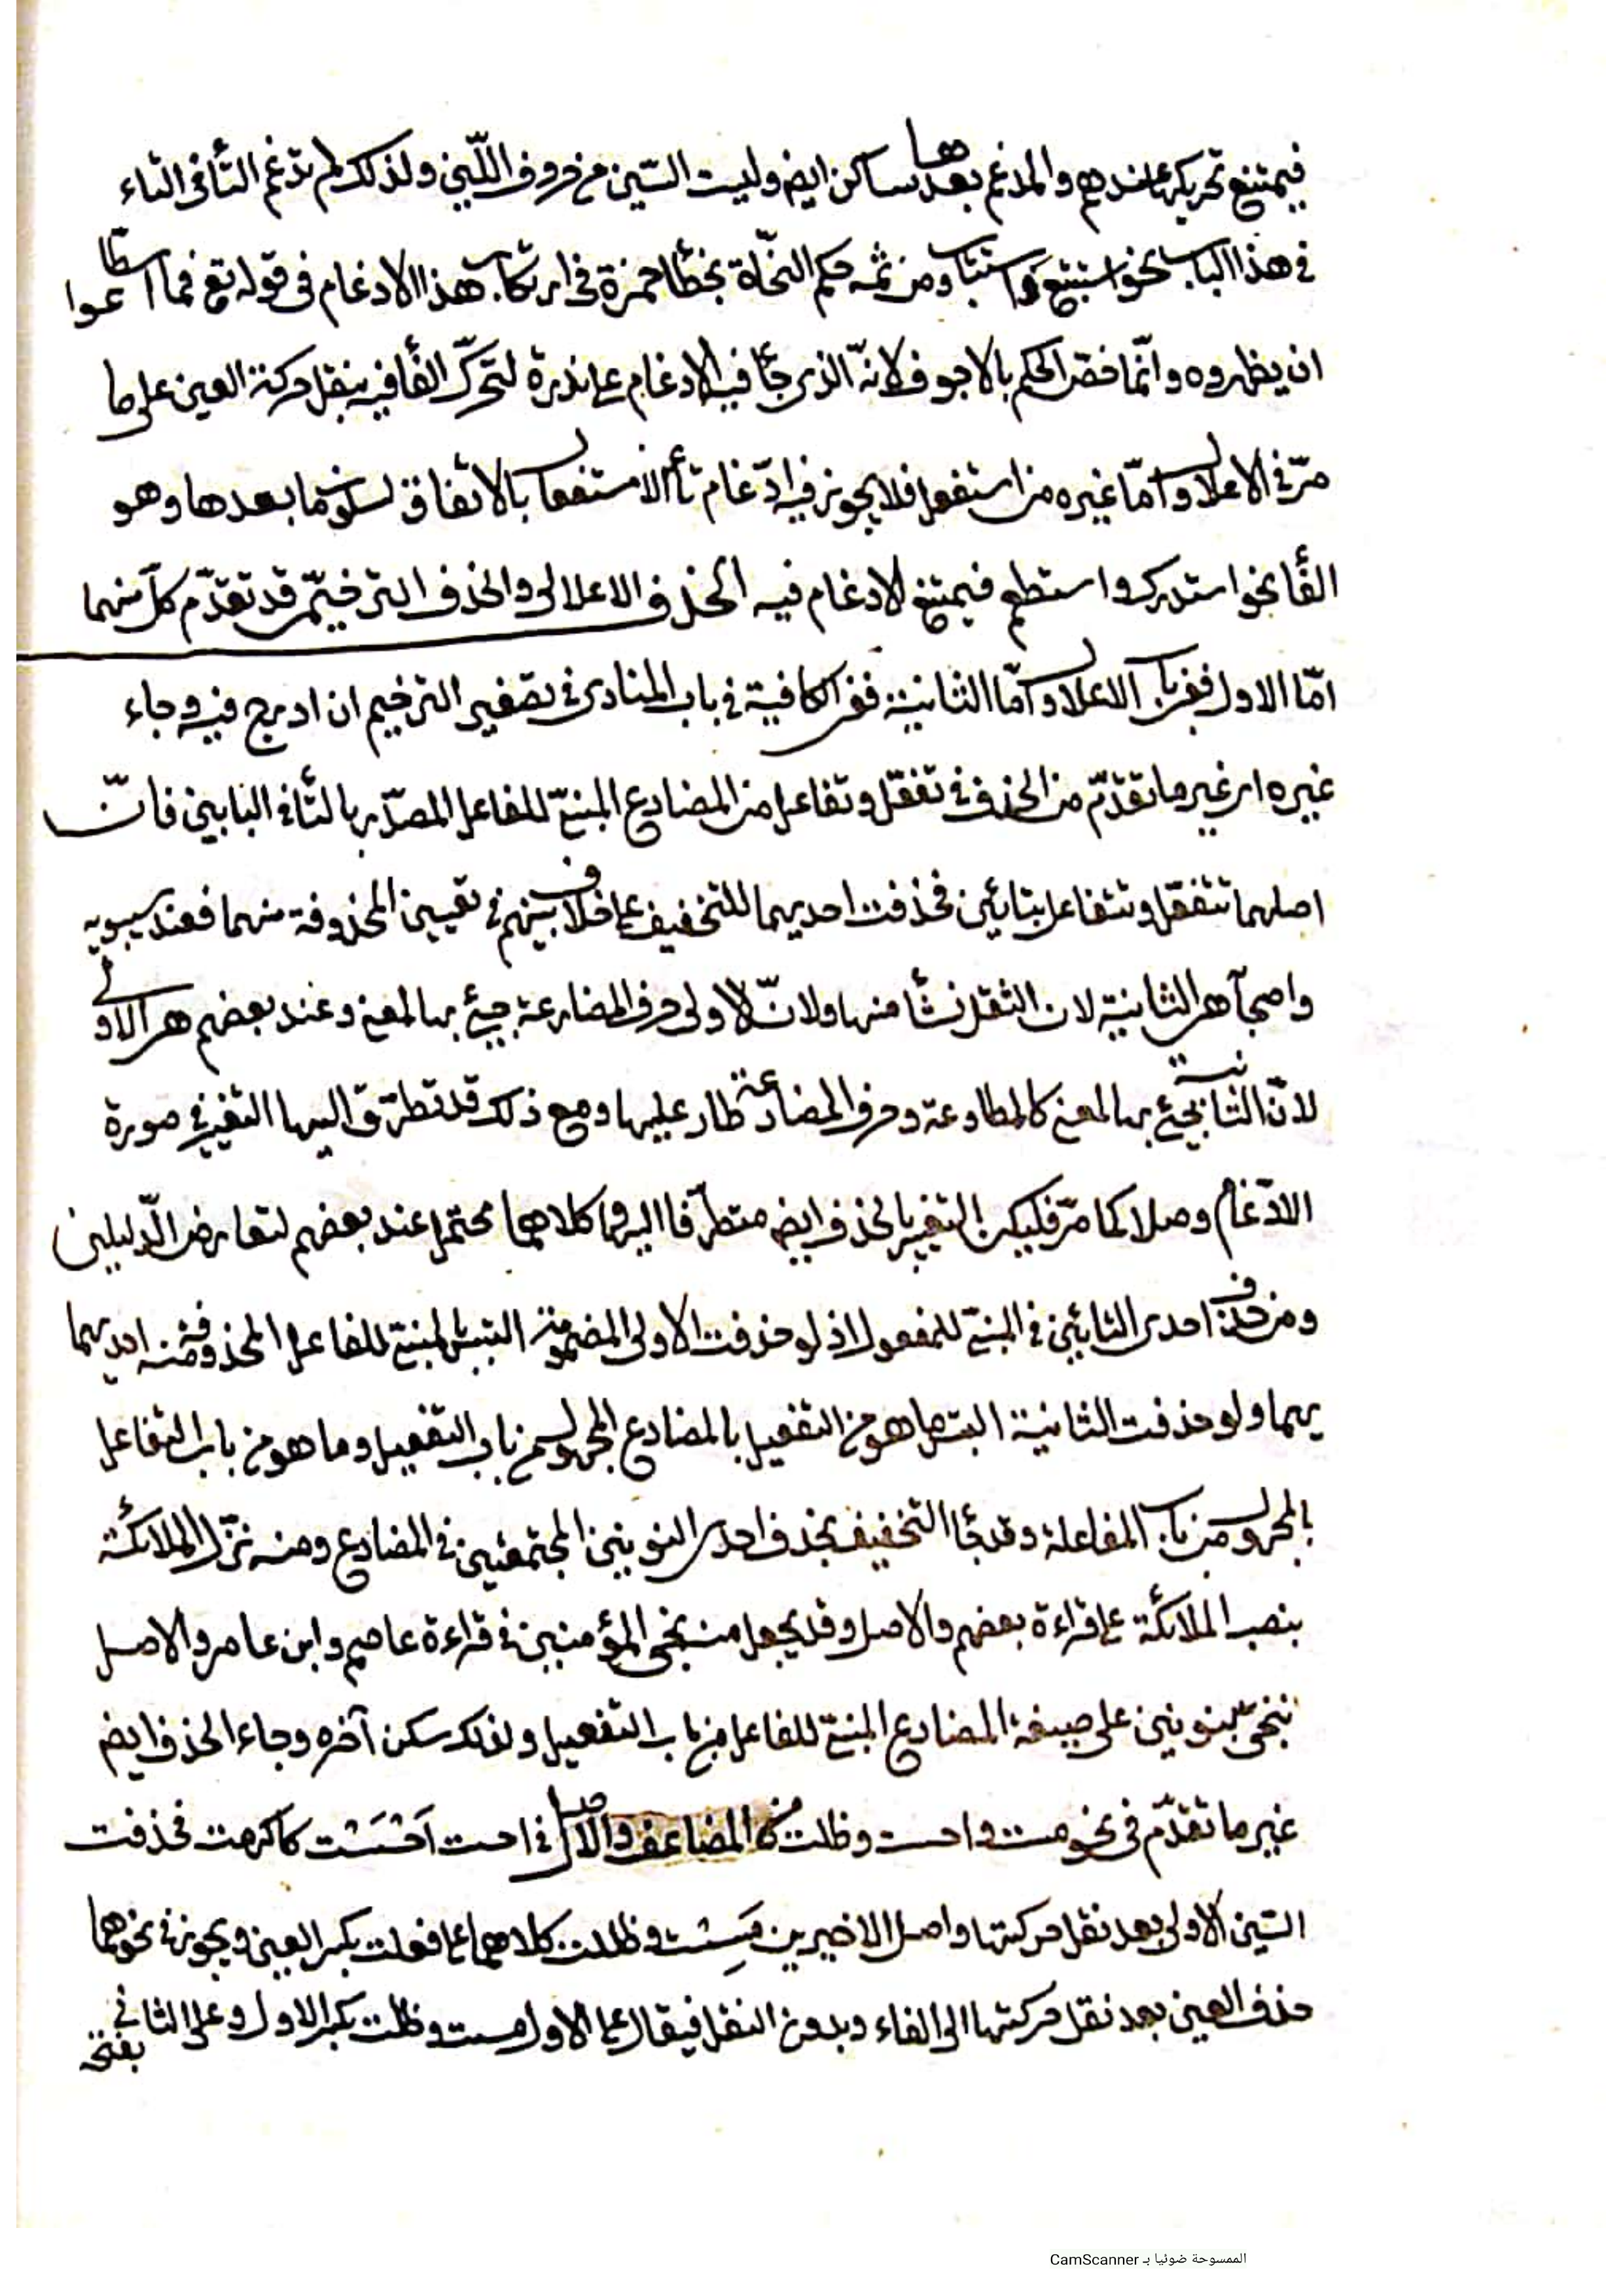 فيمتنع تحريكها عندهم والمدغم بعدها ساكن ايض وليست السّين من حروف اللّين ولذلك لم تدّغم التّأ فى التاء
فى هذا الباب نحو استتبع واستتاب ومن ثمه حكم النحّاة بخطأ حمزة فى ارتكاب هذا الادغام فى قوله تع فما اسطّاعوا
ان يظهروه وانّما خصّ الحكم بالاجوف لانّه الذى جأ فيه الادغام على ندرة لتحرّك الفأ فيه بنقل حركة العين على ما
مرّ فى الاعلال وامّا غيره من استفعل فلا يجوز فيه ادّغام تأ الاستفعال بالاتفاق لسكون ما بعدها وهو
الفأ نحو استدرك واستطعم فيمتنع الادغام فيه الحذف الاعلالى والحذف الترخيمّى قد تقدّم كلّ منهما
امّا الاول ففى باب الاعلال وامّا الثانية ففى الكافية فى باب المنادى فى تصغير الترخيم ان ادرج فيه وجاء
غيره اى غير ما تقدّم من الحذف فى تفعّل وتفاعل من المضارع المبنىّ للفاعل المصدّر بالتّأ فى البابين فانّ
اصلهما تتفعّل وتتفاعل بتائين فحذفت احديهما للتخفيف على خلاف بينهم فى تعيين المحذوفة منهما فعند سيبويه
واصحابه هى الثانية لان الثقل نشأ منها ولانّ الاولى حرف المضارعة جيئ بها لمعنى وعند بعضهم هى الاولى
لانّ الثانية جيئ بها لمعنى كالمطاوعة وحرف المضارعة طار عليها ومع ذلك قد تطرّق اليها التغير فى صورة
الادّغام وصلا كما مرّ فليكن التغيير بالحذف ايض متطرّفا اليها كلاهما محتمل عند بعضهم لتعارض الدّليلين
ومن حذف احدى التائين فى المبنىّ للمفعول اذ لو حذفت الاولى المضمومة التبس المبنىّ للفاعل المحذوفة منه احديهما
بهما ولو حذفت الثانية التبس ما هو من التفعيل بالمضارع المجهول من باب التفعيل وما هو من باب التفاعل
بالمجهول من باب المفاعلة وقد جأ التخفيف بحذف احدى النونين المجتمعتين فى المضارع ومنه نزّل الملائكة
بنصب الملائكة على قراءة بعضهم والاصل وقد يجعل منه نجى المؤمنين فى قراءة عاصم وابن عامر والاصل
ننجىّ بنونين على صيغة المضارع المبنىّ للفاعل من باب التفعيل ولذلك سكن آخره وجاء الحذف ايض
غير ما تقدّم فى نحو مست واحست وظلت من المضاعف والاصل فى احست اَحْسَسْت كاكرمت فحذفت
السّين الاولى بعد نقل حركتها واصل الاخيرين مَسِسْت وظللت كلاهما على فعلت بكسر العين ويجوز فى نحوهما
حذف العين بعد نقل حركتها الى الفاء وبدون النقل فيقال على الاول مست وظلت بكسر الاول وعلى الثانى
بفتحه
الممسوحة ضوئيا بـ CamScanner